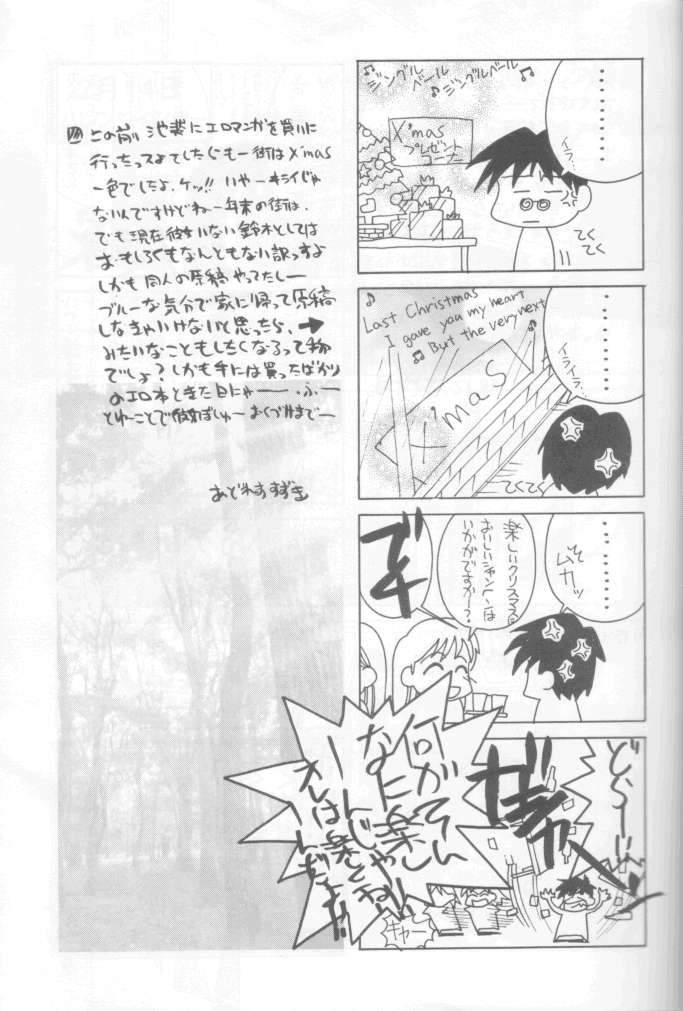 ・・・・・・・・
イラ・・
♪ジングルベール♪ジングルベール♪
X'mas
プレゼント
コーナー
てくてく
・・・・・・・・
イライラ・・
Last Christmas
I gave you my heart
But the very next
X'mas
てくてく
・・・・・・・・
ムカッ
楽しいクリスマスに
おいしいシャンペンは
いかがですかー?
デイ
どくーん
キャー
何がそん
なに楽し
ーんじゃねい
オレは楽しくない
んだよ
この前 池袋にエロマンガを買いに
行ったってよてしたらもー街はX'mas
一色でしたよ、ケッ!! いやーキライじゃ
ないんですけどねー年末の街は、
でも現在彼女いない鈴木としては
おもしろくもなんともない訳っすよ
しかも同人の原稿やってたしー
ブルーな気分で家に帰って原稿
しなきゃいけないと思ったら、→
みたいなこともしたくなるって物
でしょ?しかも手には買ったばかり
のエロ本ときた日にゃー──・ふ・─
とゆーことで
あどれすすずき